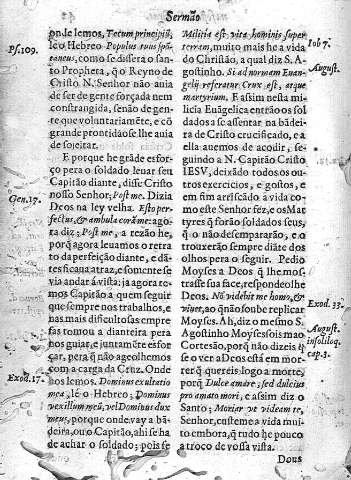 Sermão
Ps.109.
onde lemos, Tecum principiũ,
lé o Hebreo Populus tuus spõ-
taneus, como se dissera o san-
to Propheta, q̃ o Reyno de
Cristo N. Senhor não auia
de ser de gente forçada nem
constrangida, senão de gen-
te que voluntariamẽte, e cõ
grande prontidão se lhe auia
de sojeitar.
E porque he grãde esfor-
ço pera o soldado leuar seu
Capitão diante, disse Cristo
nosso Senhor; Post me. Dizia
Gen.17.
Deos na ley velha. Esto per-
fectus, & ambula corã me: ago-
ta diz; Post me, a rezão he,
porq̃ agora leuamos o retra-
to da perfeição diante, e dã-
tes ficaua atraz, e somente se
via andar á vista: já agora te-
mos Capitão a quem seguir
que sempre nos trabalhos, e
nas mais difficultosas empre
sas tomou a dianteira pera
nos guiar, e juntamẽte esfor
çar, pera q̃ não ageolhemos
com a carga da Cruz. Onde
Exod.17.
nos lemos. Dominus exultatio
mea, lé o Hebreo; Dominus
vexillum meũ, vel Dominus dux
meus, porque onde vay a bã-
deira, ou o Capitão, ahi se ha
de achar o soldado; pois se
Militia est vita hominis super
terram, muito mais he a vida
Iob 7.
do Christão, a qual diz S. A-
gostinho. Si ad normam Euan-
August.
gelij referatur Crux est, atque
martyrium. E assim nesta mi-
licia Euãgelica entrão os sol
dados a se assentar na bãdei-
ra de Cristo crucificado, e a
ella auemos de acodir, se-
guindo a N. Capitão Cristo
IESV, deixãdo todos os ou-
tros exercicios, e gostos, e
em fim arriscãdo a vida co-
mo este Senhor fez, e os Mar
tyres q̃ forão soldados seus,
q̃ o não desempararão, e o
trouxerão sempre diãte dos
olhos pera o seguir. Pedio
Moyses a Deos q̃ lhe mos-
trasse sua face, respondeolhe
Exod. 33.
Deos. Nõ videbit me homo, &
viuet, ao q̃ não soube replicar
Moyses. Ah, diz o mesmo S.
August.
in soliloq.
cap. 3.
Agostinho Moyses sois mao
Cortesão, porq̃ não dizeis q̃
se o ver a Deos está em mor-
rer q̃ quereis logo a morte,
porq̃ Dulce amare; sed dulcius
pro amato mori, e assim diz o
Santo; Moriar ve videam te,
Senhor, custeme a vida mui-
to embora, q̃ tudo he pouco
a troco de vossa vista.
Dous